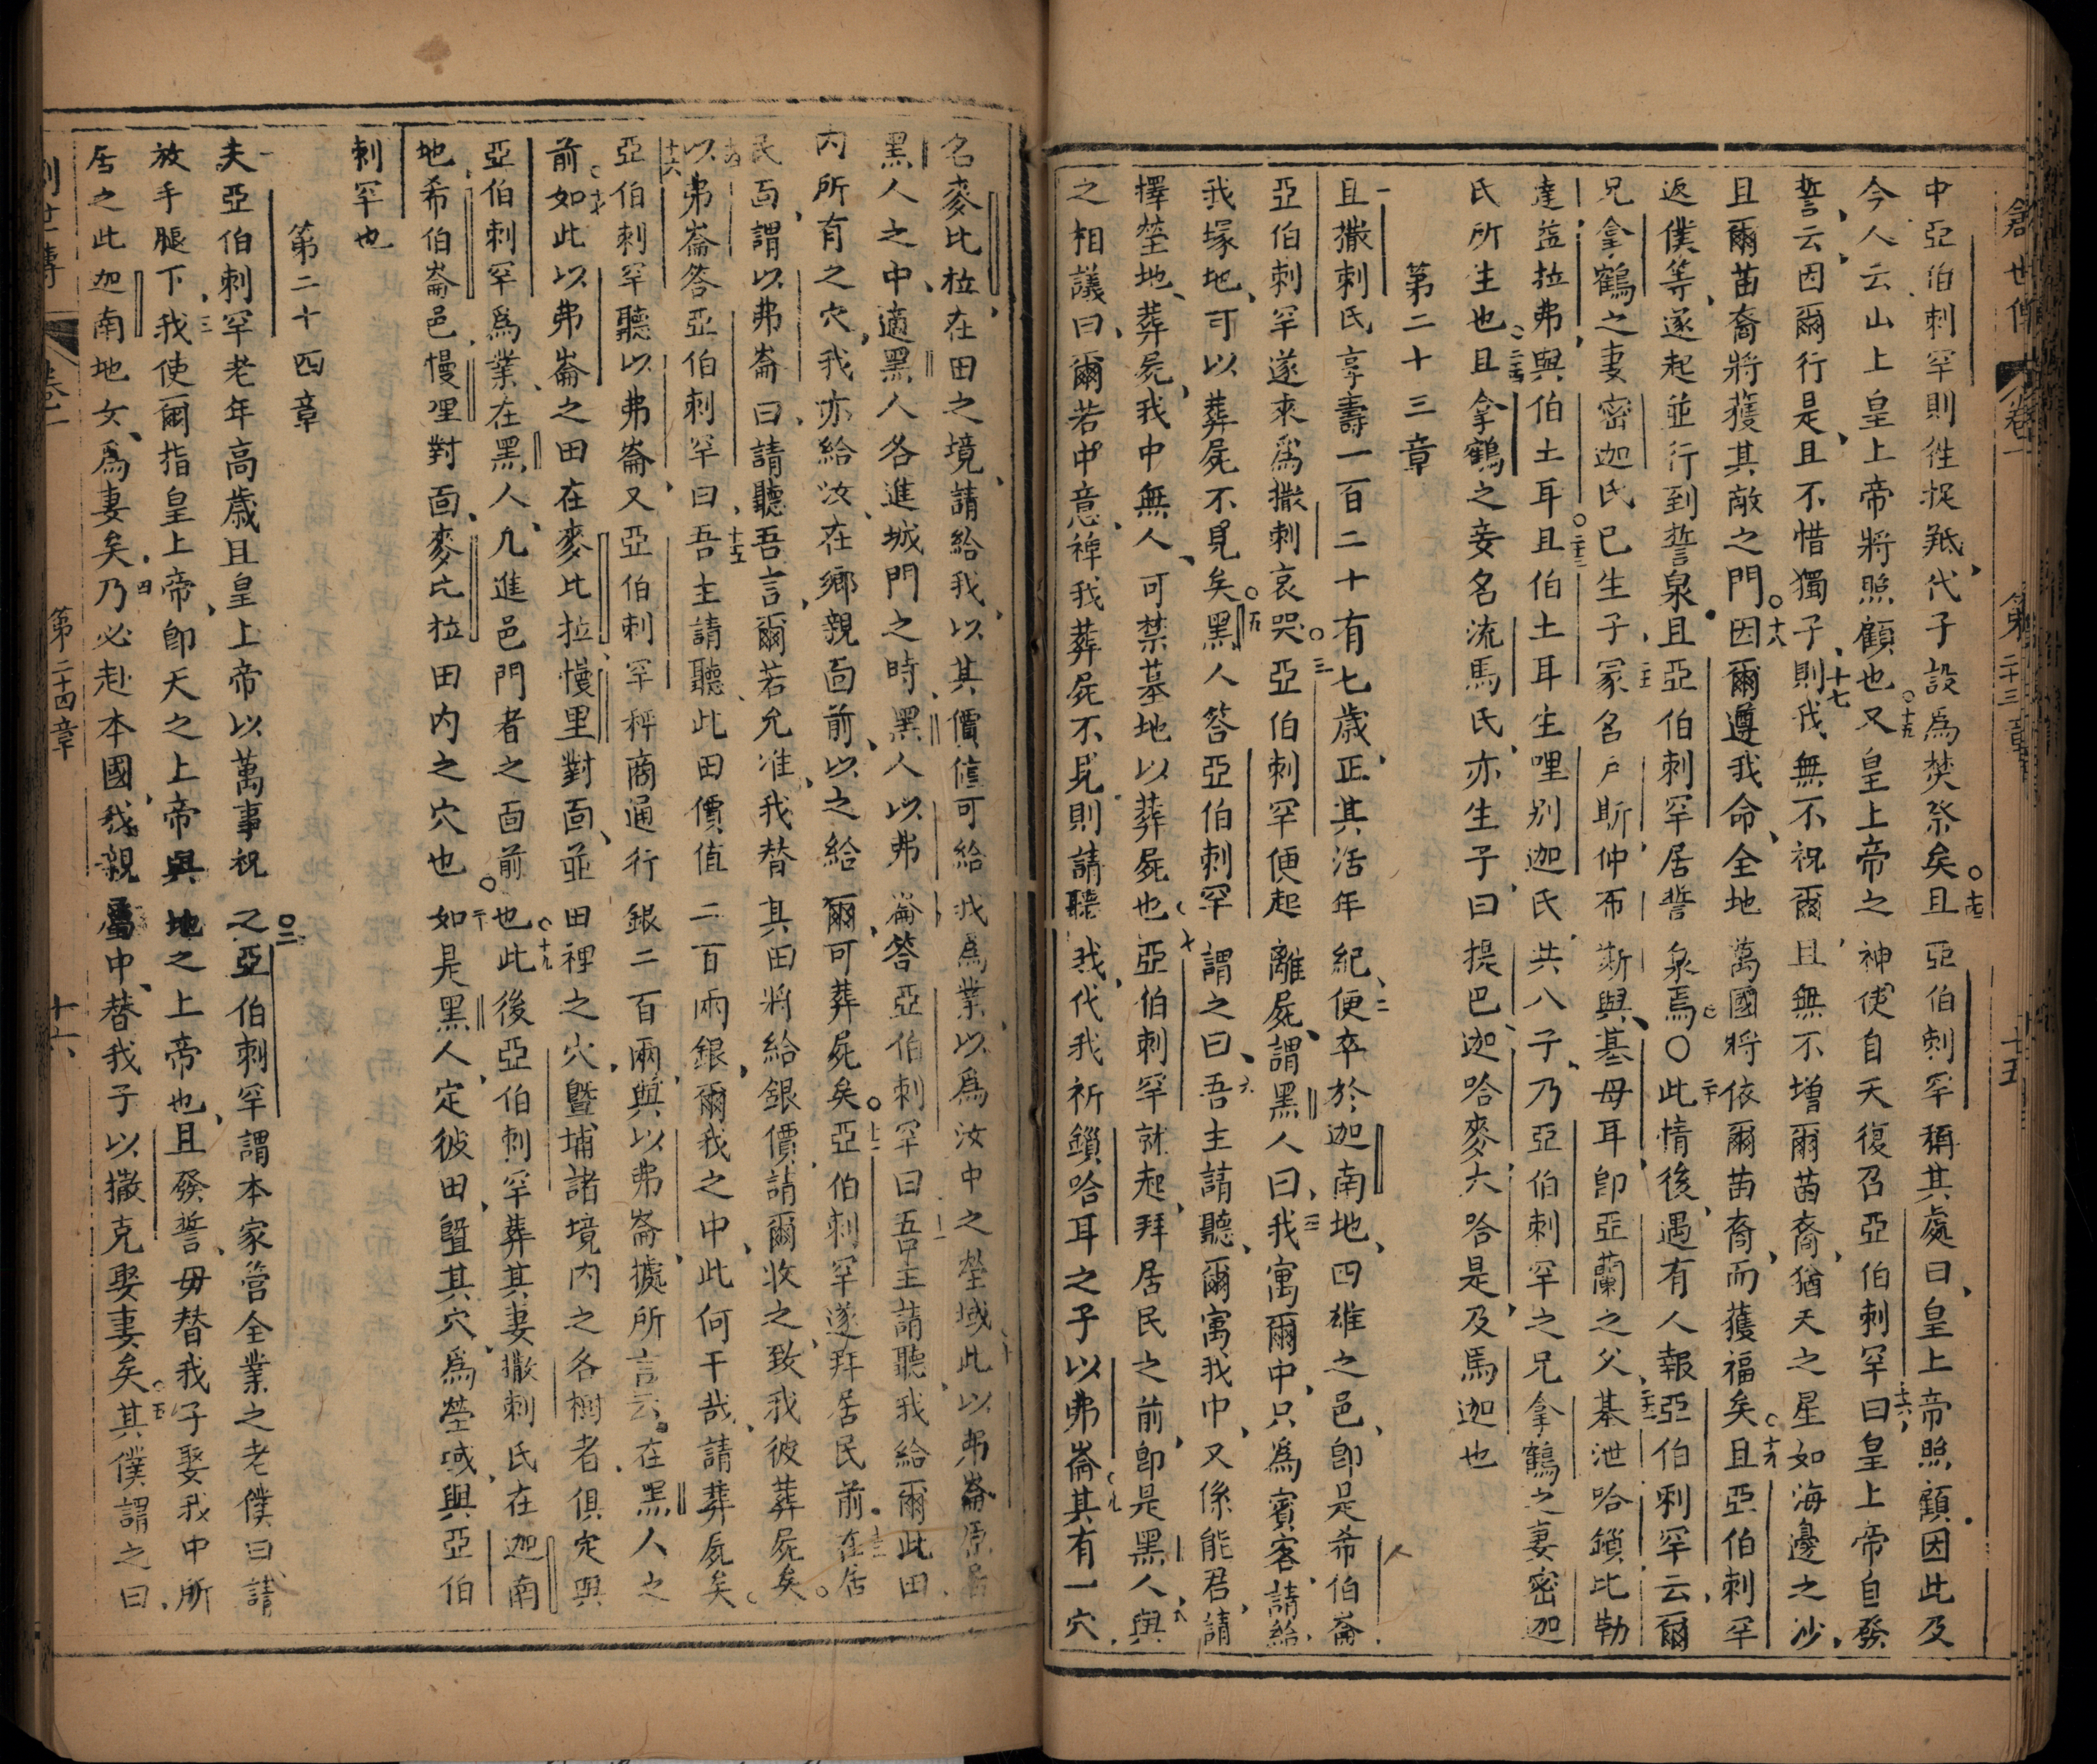 創世傳 卷一 第二十三章 十五
中亞伯剌罕則徃捉羝代子設爲焚祭矣○十四且亞伯剌罕稱其處曰皇上帝照顧因此及
今人云山上皇上帝將照顧也○十五又皇上帝之神使自天復召亞伯剌罕曰十六皇上帝自發
誓云因爾行是且不惜獨子十七則我無不祝爾且無不增爾苗裔猶天之星如海邊之沙
且爾苗裔將獲其敵之門○十八因爾遵我命全地萬國將依爾苗裔而獲福矣○十九且亞伯剌罕
返僕等遂起並行到誓泉且亞伯剌罕居誓泉焉○二十此情後遇有人報亞伯剌罕云爾
兄拿鶴之妻密迦氏已生子二一冢名戶斯仲布斯與基母耳卽亞蘭之父二二基泄哈鎖比勒
達益拉弗與伯土耳○二三且伯土耳生哩别迦氏共八子乃亞伯剌罕之兄拿鶴之妻密迦
氏所生也○二四且拿鶴之妾名流馬氏亦生子曰提巴迦哈麥大哈是及馬迦也
第二十三章
一且撒剌氏享壽一百二十有七歲正其活年紀二便卒於迦南地四雄之邑卽是希伯崙
亞伯剌罕遂來爲撒剌哀哭○三亞伯剌罕便起離屍謂黑人曰四我寓爾中只爲賓客請給
我塚地可以葬屍不見矣○五黑人答亞伯剌罕謂之曰六吾主請聽爾寓我中又係能君請
擇塋地葬屍我中無人可禁墓地以葬屍也七亞伯剌罕就起拜居民之前卽是黑人八與
之相議曰爾若中意裨我葬屍不見則請聽我代我祈鎖哈耳之子以弗崙九其有一穴
名麥比拉在田之境請給我以其價值可給我爲業以爲汝中之塋域十此以弗崙原居
黑人之中適黑人各進城門之時黑人以弗崙答亞伯剌罕曰十一吾主請聽我給爾此田
內所有之穴我亦給汝在鄉親面前以之給爾可葬屍矣○十二亞伯剌罕遂拜居民前十三在居
民面謂以弗崙曰請聽吾言爾若允准我替其田將給銀價請爾收之致我彼葬屍矣○
十四以弗崙答亞伯剌罕曰十五吾主請聽此田價值二百兩銀爾我之中此何干哉請葬屍矣
十六亞伯剌罕聽以弗崙又亞伯剌罕秤商通行銀二百兩與以弗崙據所言云在黑人之
前○十七如此以弗崙之田在麥比拉慢里對面並田裡之穴曁埔諸境內之各樹者俱定與
亞伯剌罕爲業在黑人凡進邑門者之面前也○十九此後亞伯剌罕葬其妻撒剌氏在迦南
地希伯崙邑慢哩對面麥比拉田內之穴也○二十如是黑人定彼田曁其穴爲塋域與亞伯
剌罕也
第二十四章
一夫亞伯剌罕老年高歲且皇上帝以萬事祝之○二亞伯剌罕謂本家管全業之老僕曰請
放手腿下三我使爾指皇上帝卽天之上帝與地之上帝也且發誓毋替我子娶我中所
居之此迦南地女爲妻矣四乃必赴本國我親屬中替我子以撒克娶妻矣○五其僕謂之曰
創世傳 卷一 第二十四章 十六